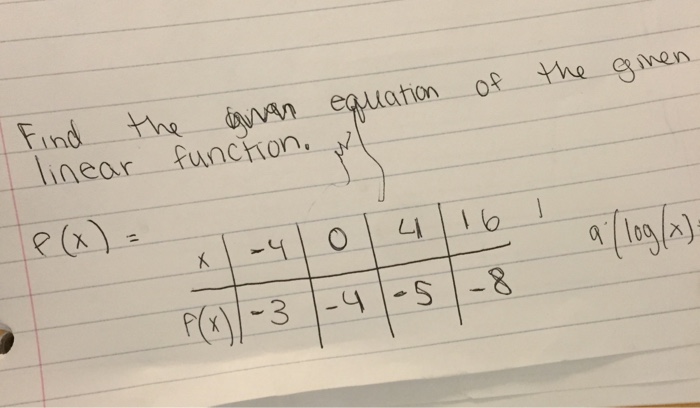 Find the equation of the given
linear function.
P(x) =
x | -4 | 0 | 4 | 16
P(x) | -3 | -4 | -5 | -8
a (log(x)